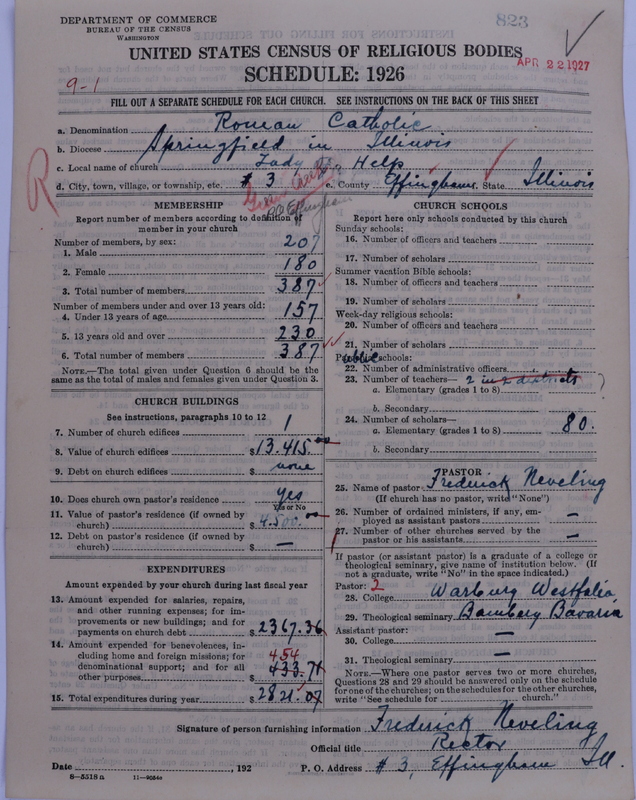 DEPARTMENT OF COMMERCE
BUREAU OF THE CENSUS
WASHINGTON
823
UNITED STATES CENSUS OF RELIGIOUS BODIES
APR 22 1927
SCHEDULE: 1926
9-1
FILL OUT A SEPARATE SCHEDULE FOR EACH CHURCH. SEE INSTRUCTIONS ON THE BACK OF THIS SHEET
a. Denomination Roman Catholic
b. Diocese Springfield in Illinois
c. Local name of church Lady of Help
d. City, town, village, or township, etc. # 3 e. County Effingham State Illinois
R
Effingham
MEMBERSHIP
Report number of members according to definition of member in your church
Number of members, by sex:
1. Male 207
2. Female 180
3. Total number of members 387
Number of members under and over 13 years old:
4. Under 13 years of age 157
5. 13 years old and over 230
6. Total number of members 387
NOTE.—The total given under Question 6 should be same as the total of males and females given under Question 3.
CHURCH BUILDINGS
See instructions, paragraphs 10 to 12
7. Number of church edifices 1
8. Value of church edifices $13.415.00
9. Debt on church edifices $ none
10. Does church own pastor's residence yes
Yes or No
11. Value of pastor's residence (if owned by church) $4.500.00
12. Debt on pastor's residence (if owned by church) $ —
EXPENDITURES
Amount expended by your church during last fiscal year
13. Amount expended for salaries, repairs, and other running expenses; for improvements or new buildings; and for payments on church debt $2367.36
14. Amount expended for benevolences, including home and foreign missions; for denominational support; and for all other purposes $ 433.71
454
15. Total expenditures during year $2821.07
CHURCH SCHOOLS
Report here only schools conducted by this church
Sunday schools:
16. Number of officers and teachers
17. Number of scholars
Summer vacation Bible schools:
18. Number of officers and teachers
19. Number of scholars
Week-day religious schools:
20. Number of officers and teachers
21. Number of scholars
Public schools:
22. Number of administrative officers
23. Number of teachers— 2 in 2 districts ?
a. Elementary (grades 1 to 8)
b. Secondary
24. Number of scholars—
a. Elementary (grades 1 to 8) 80.
b. Secondary
PASTOR
25. Name of pastor Frederick Neveling
(If church has no pastor, write "None")
26. Number of ordained ministers, if any, employed as assistant pastors —
27. Number of other churches served by the pastor or his assistants —
If pastor (or assistant pastor) is a graduate of a college or theological seminary, give name of institution below. (If not a graduate, write "No" in the space indicated.)
Pastor: 2
28. College Warburg Westfalia
29. Theological seminary Bamberg Bavaria
Assistant pastor:
30. College —
31. Theological seminary —
NOTE.—Where one pastor serves two or more churches, Questions 28 and 29 should be answered only on the schedule for one of the churches; on the schedules for the other churches, write "See schedule for church."
Signature of person furnishing information Frederick Neveling
Official title Rector
Date , 192
P. O. Address # 3, Effingham Ill.
8-5518 a